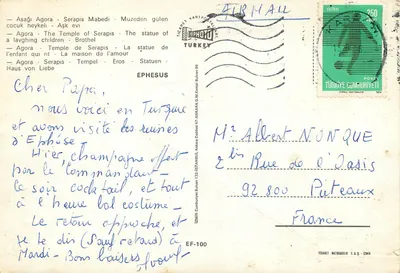 — Aşağı Agora - Serapis Mabedi - Muzeden gulen
cocuk heykeli - Aşk evi
— Agora - The Temple of Serapis - The statue of
a laughing children - Brothel
— Agora - Temple de Serapis - La statue de
l'enfant qui rit - La maison de l'amour
— Agora - Serapis - Tempel - Eros - Statuen -
Haus von Liebe
EPHESUS
Cher Papa,
nous voici en Turquie
et avons visité les ruines
d'Ephèse!
Hier, champagne offert
par le Commandant -
le soir cocktail, et tout
à l'heure bal costumé -
Le retour approche, et
je te dis (sauf retard) à
Mardi - Bons baisers,
EF-100
TURKEY
AIR MAIL
250
TÜRKİYE CUMHURİYETİ
Mr Albert NUNQUE
2 bis Rue de l'Oasis
92 800 Puteaux
France